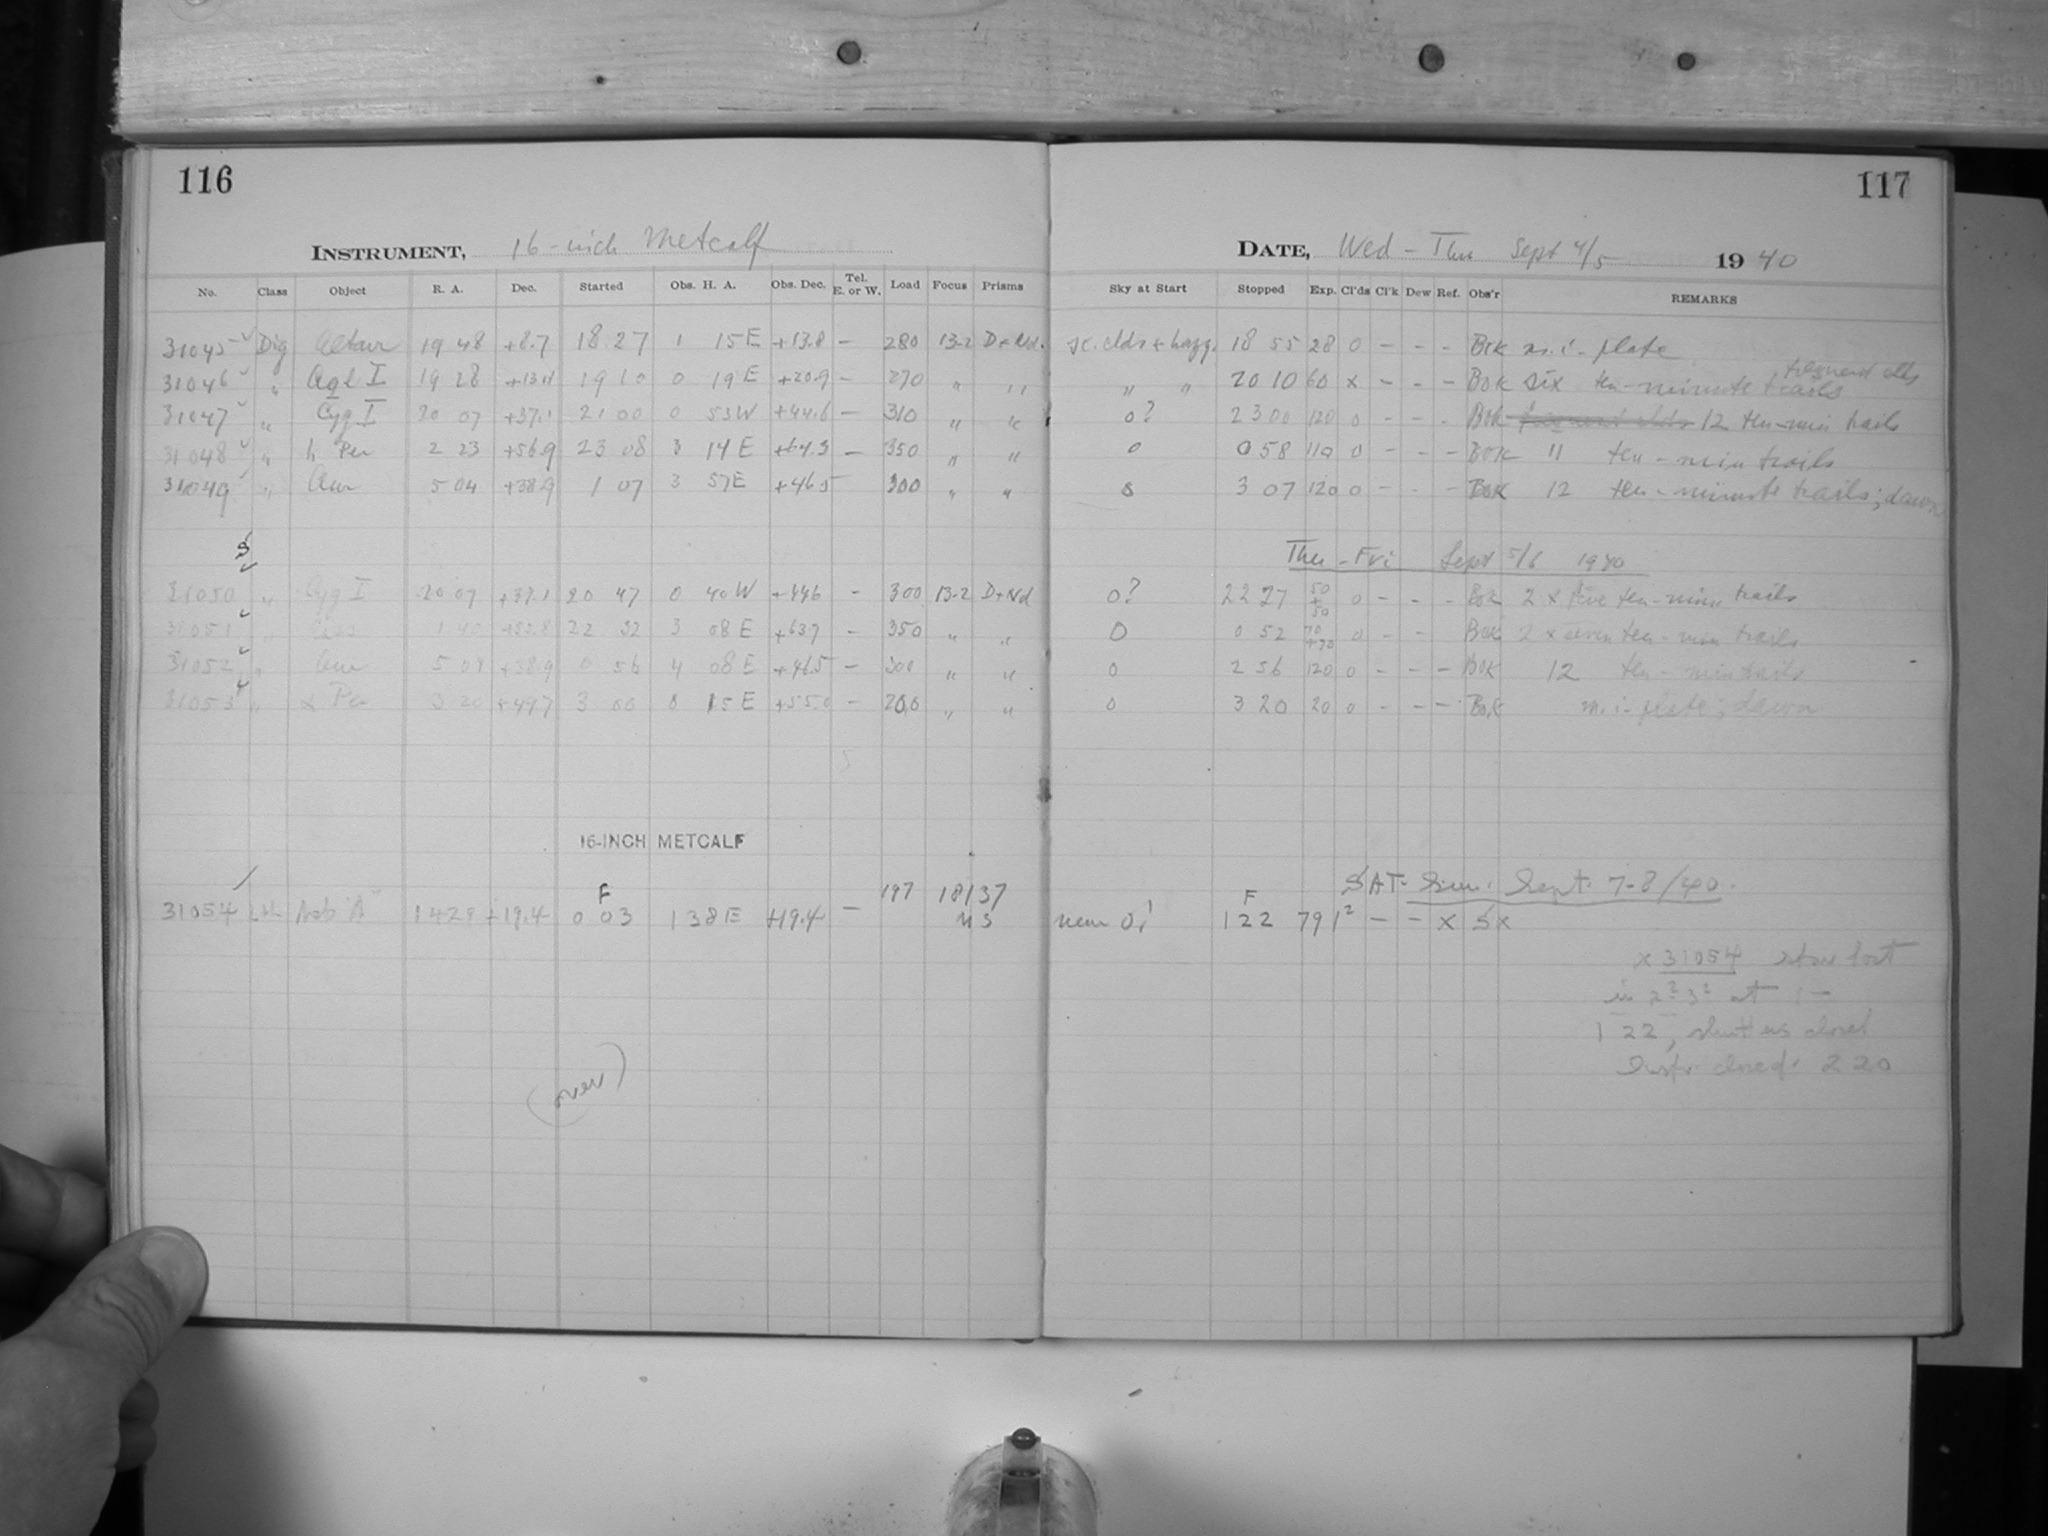 116
117
INSTRUMENT, 16-inch Metcalf
DATE, Wed - Thu Sept 4/5 1940
No. Class Object R. A. Dec. Started Obs. H. A. Obs. Dec. Tel. E. or W. Load Focus Prisms Sky at Start Stopped Exp. Cl'ds Cl'k Dew Ref. Obs'r REMARKS
31045 Dig Altair 19 48 +8.7 18 27 1 15 E +13.8 - 280 13-2 D+Nd. sc. clds + hazy. 18 55 28 0 - - - Bok m.i. plate
frequent clds
31046 " Aql I 19 28 19 10 0 19 E +20.9 - 270 " " " " 20 10 60 x - - - Bok six ten-minute trails
31047 " Cyg I 20 07 +37.1 21 00 0 53 W +44.6 - 310 " " 0? 23 00 120 0 - - - Bok frequent clds 12 ten-min trails
31048 " h Per 2 23 +56.9 23 08 3 14 E +64.3 - 350 " " 0 0 58 110 0 - - - Bok 11 ten-min trails
31049 " Aur 5 04 +38.9 1 07 3 57 E +46.5 300 " " 3 07 120 0 - - - Bok 12 ten-minute trails; dawn
S
Thu - Fri Sept 5/6 1940
31050 " Cyg I 20 07 +37.1 20 47 0 40 W +44.6 - 300 13-2 D+Nd 0? 22 27 50 + 50 0 - - - Bok 2 x five ten-min trails
31051 " 1 40 22 32 3 08 E +63.7 - 350 " " 0 0 52 70 +70 0 - - Bok 2 x seven ten-min trails
31052 " Aur 5 04 +38.9 0 56 4 08 E +46.5 - 300 " " 0 2 56 120 0 - - - Bok 12 ten-min trails
31053 " α Per 3 20 +49.7 3 00 0 15 E +55.0 - 200 " " 0 3 20 20 0 - - - Bok m.i. plate; dawn
16-INCH METCALF
SAT- Sun. Sept. 7-8/40.
F 197 18137 F
31054 +19.4 0 03 1 38 E +19.4 - 1 22 79 1² - - x Sx
x 31054 stars lost
in at
1 22, shutters closed
Instr. closed: 2 20
(over)